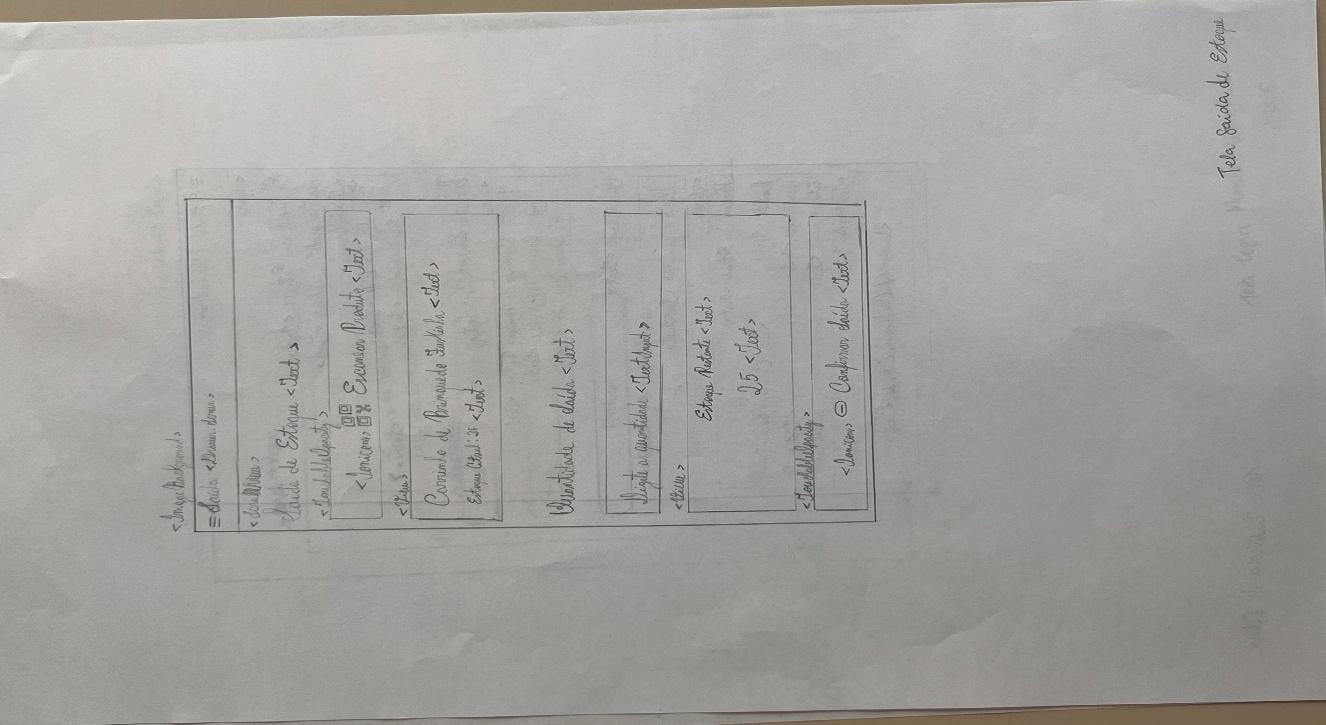 Tela Saída de Estoque
<ImageBackground>
≡ Saída <Drawer.Screen>
<ScrollView>
Saída de Estoque <Text>
<TouchableOpacity>
<Ionicons> Escanear Produto <Text>
<View>
Carrinho de Brinquedo <Text>
Estoque Atual: <Text>
Quantidade de Saída <Text>
Digite a quantidade <TextInput>
<View>
Estoque Restante <Text>
25 <Text>
<TouchableOpacity>
<Ionicons> ⊖ Confirmar Saída <Text>